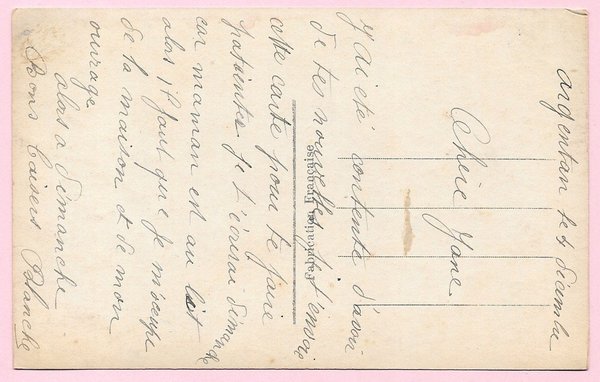 Argentan le 4 décembre
Chère Jane.
J'ai été contente d'avoir
de tes nouvelles je t'envoie
cette carte pour te faire
patienter je t'écrirai dimanche
car maman est au lit
alors il faut que je m'occupe
de la maison et de mon
ouvrage
alors a dimanche
Bons baisers Blanche
Fabrication Française